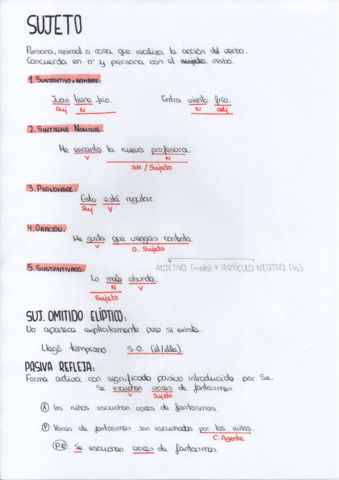 SUJETO
Persona, animal o cosa que realiza la acción del verbo.
Concuerda en nº y persona con el sujeto verbo.
1. SUSTANTIVO o NOMBRE:
Juan tiene frío. Entra viento frío.
Suj V N adj
2. SINTAGMA NOMINAL:
Me encanta la nueva profesora.
V N
SN / Sujeto
3. PRONOMBRE:
Esto está regular.
Suj V
4. ORACIÓN:
Me gusta que vengas contenta.
V O. Sujeto
5. SUSTANTIVADO: ADJETIVO (malo) + ARTÍCULO NEUTRO (lo)
Lo malo abunda.
N V
Sujeto
SUJ. OMITIDO ELÍPTICO:
No aparece explícitamente pero si existe.
Llegó temprano S.O. (él/ella)
PASIVA REFLEJA:
Forma activa con significado pasivo introducido por Se.
Se escuchan voces de fantasmas.
V Sujeto
A Los niños escuchan voces de fantasmas.
P Voces de fantasmas son escuchadas por los niños.
C. Agente
P.R Se escuchan voces de fantasmas.